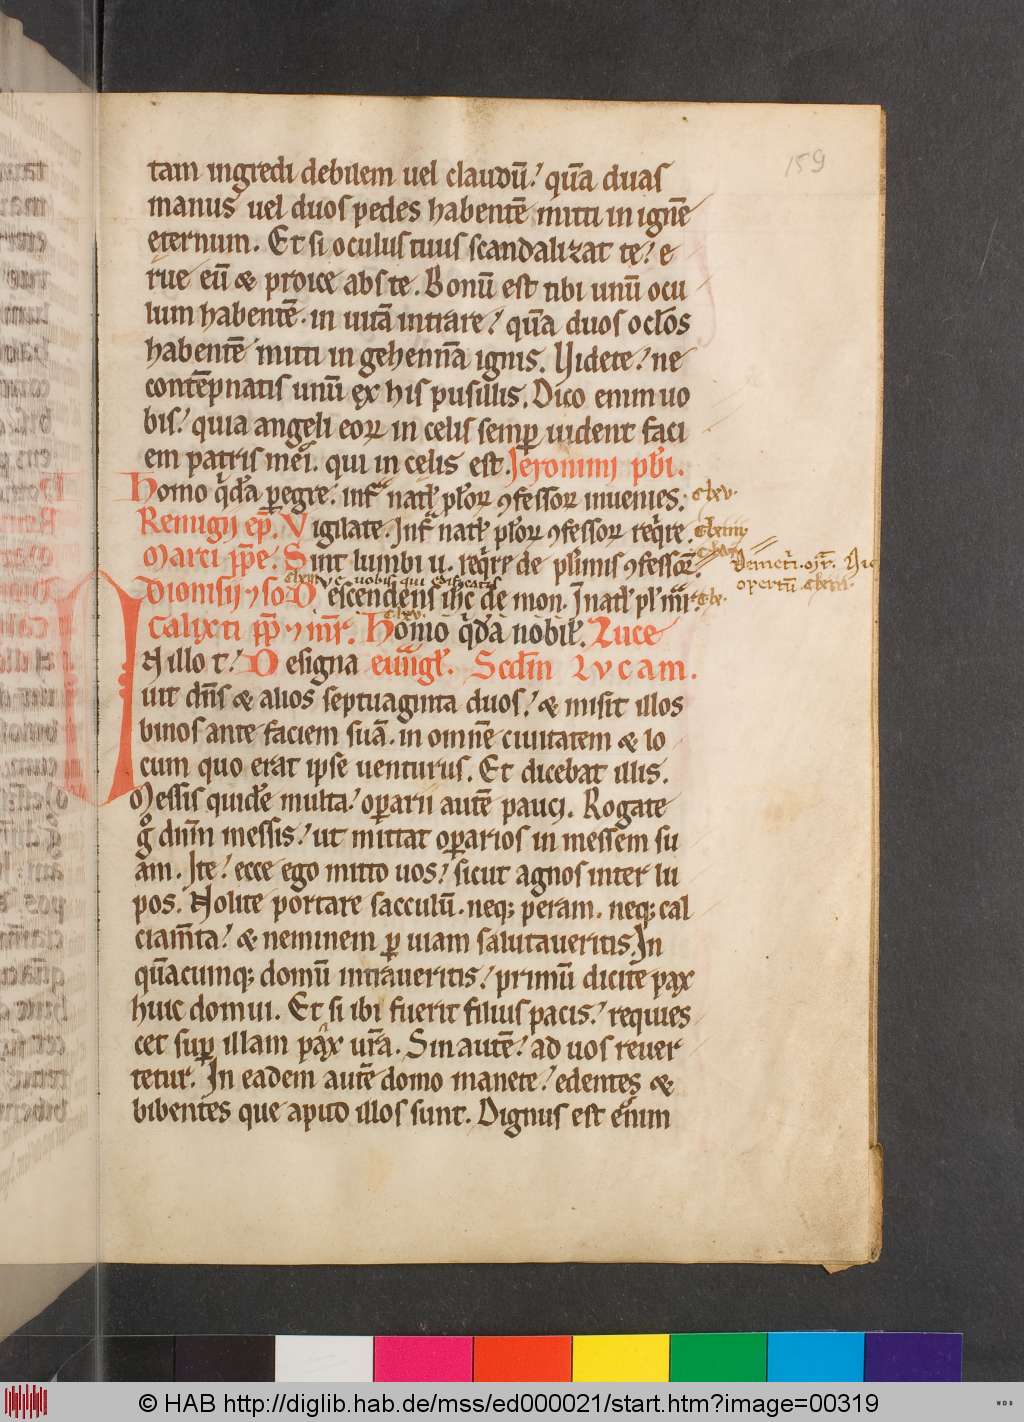 159
tam ingredi debilem uel claudū. qūa duas
manus uel duos pedes habentē mitti in ignē
eternum. Et si oculus tuus scandalizat te. e
rue eū & proice abs te. Bonū est tibi unū ocu
lum habentē. in uitā intrare. qūa duos oclos
habentē mitti in gehennā ignis. Videte. ne
contēpnatis unū ex his pusillis. Dico enim uo
bis. quia angeli eoꝝ in celis semp uident faci
em patris mei. qui in celis est. Jeronimi pbri.
Homo qdā pegre. inf nat plor ꝯfessor inuenies.
Remigii ep. Vigilate. Inf nat plor ꝯfessor reqre.
Marci ppe. Sint lumbi u. reqre de plimis ꝯfessor.
Demetri. mr. Ni
opertū
uc nobis qui edificatis
Dionisii ⁊ so Descendens ihc de mon. In nat pl mr.
Calixti pp ⁊ mr. Homo qdā nobil. Luce
N illo t. Designa euuigl. Scdm Lucam.
uit dn̄s & alios septuaginta duos. & misit illos
binos ante faciem suā. in omnē ciuitatem & lo
cum quo erat ipse uenturus. Et dicebat illis.
Messis quidē multa. operarii autē pauci. Rogate
g dnm messis. ut mittat operarios in messem su
am. Ite. ecce ego mitto uos. sicut agnos inter lu
pos. Nolite portare sacculū. neq; peram. neq; cal
ciamta. & neminem p uiam salutaueritis. In
qūacumq; domū intraueritis. primū dicite pax
huic domui. Et si ibi fuerit filius pacis. requies
cet sup illam pax urā. Sin autē. ad uos reuer
tetur. In eadem autē domo manete. edentes &
bibentes que apud illos sunt. Dignus est enim
© HAB http://diglib.hab.de/mss/ed000021/start.htm?image=00319